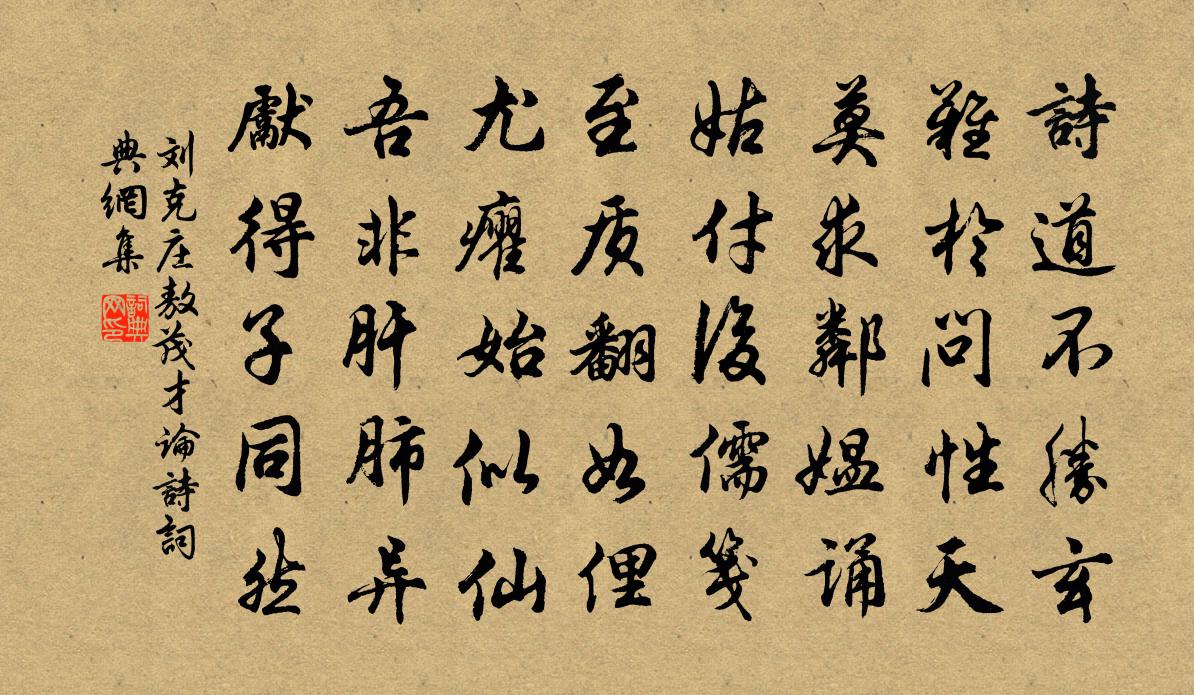 詩道不勝玄
難於問性天
莫求鄰媪誦
姑付後儒箋
至质翻如俚
尤癯始似仙
吾非肝肺异
獻得子同然
刘克庄敖茂才論詩詞
典網集
詞典
网印